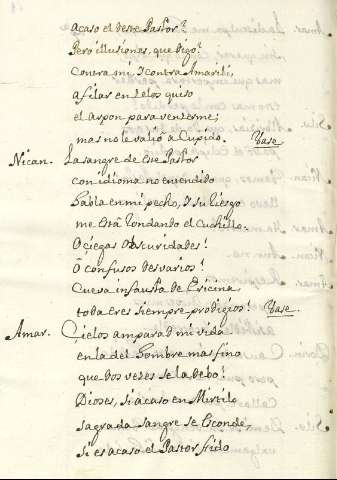 acaso el deste Pastor?
Pero illusiones, que digo?
Contra mi, I contra Amarili,
afilar en Zelos quiso
el arpon para venzerme;
mas no le valiò a Cupido. Vase.
Nican. La sangre de este Pastor
con idioma no entendido
habla en mi pecho, I su riesgo
me està rondando el Cuchillo.
O ciegas obscuridades!
O confusos desvarios!
Cueva infausta de Ericina
toda eres siempre prodigios! Vase.
Amar. Cielos amparad mi vida
en la del hombre mas fino
que dos vezes se la debo!
Dioses, si acaso en Mirtilo
sagrada sangre se esconde,
si es acaso el Pastor fido